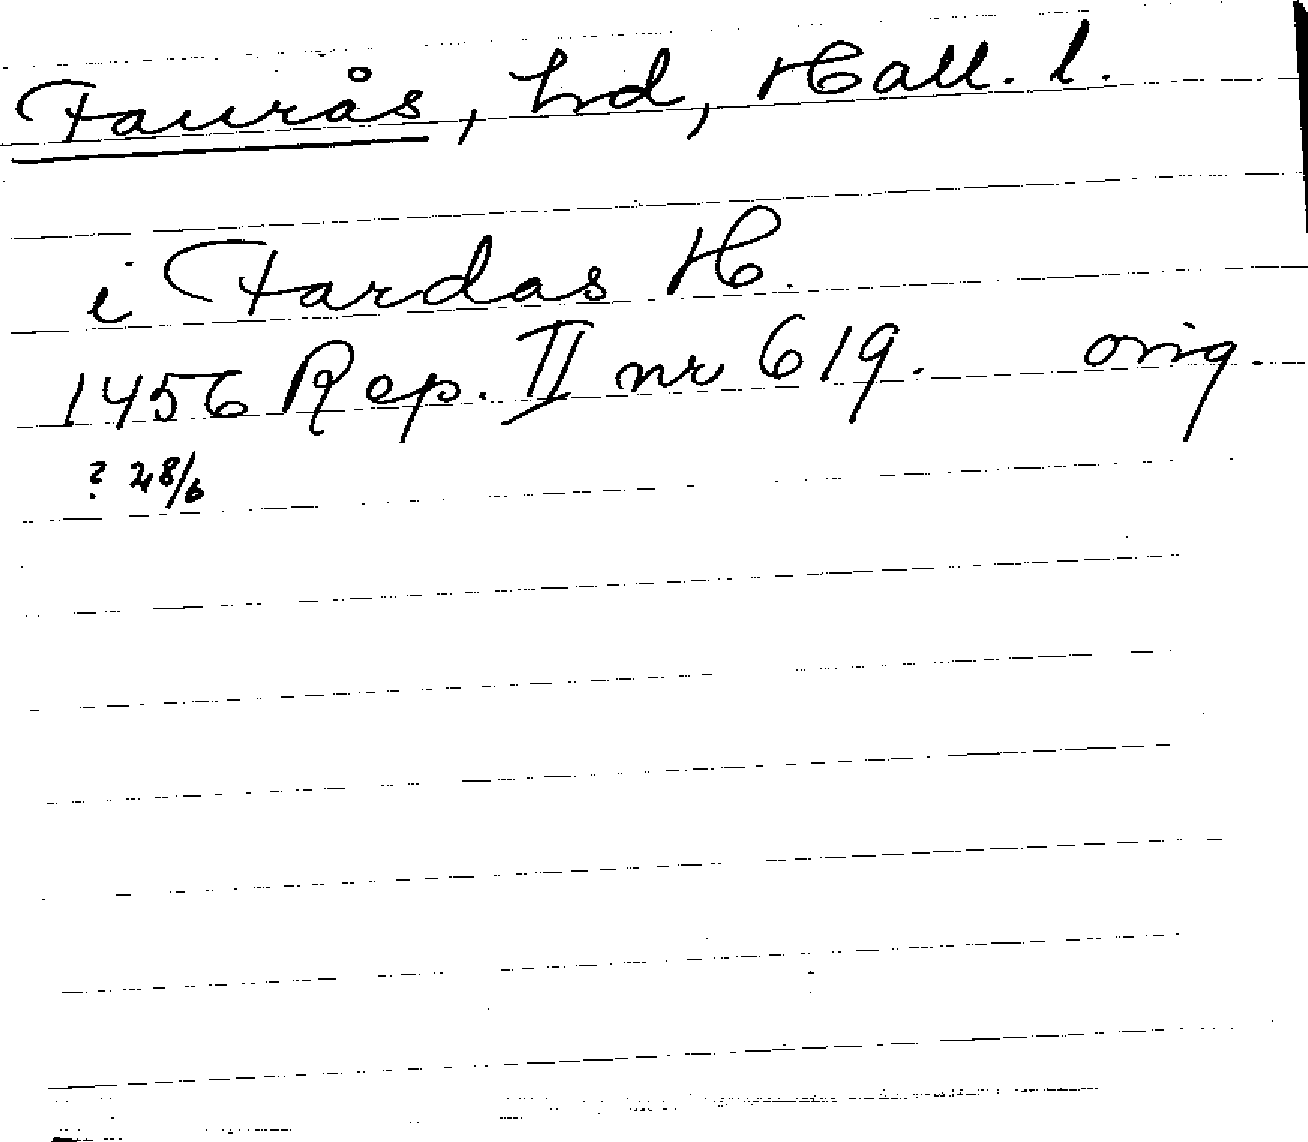 Faurås, hd, Hall. l.
i Fardas H.
1456 Rep. II nr 619. orig.
? 28/6